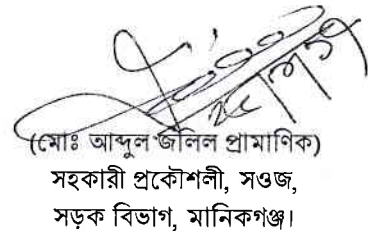 (মোঃ আব্দুল জলিল প্রামাণিক)
সহকারী প্রকৌশলী, সওজ,
সড়ক বিভাগ, মানিকগঞ্জ।